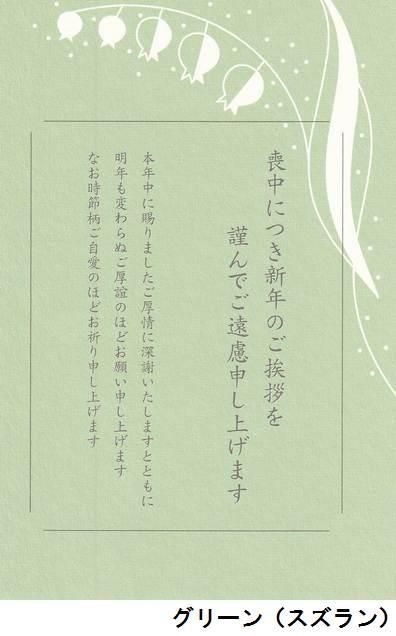 喪中につき新年のご挨拶を
謹んでご遠慮申し上げます
本年中に賜りましたご厚情に深謝いたしますとともに
明年も変わらぬご厚誼のほどお願い申し上げます
なお時節柄ご自愛のほどお祈り申し上げます
グリーン（スズラン）